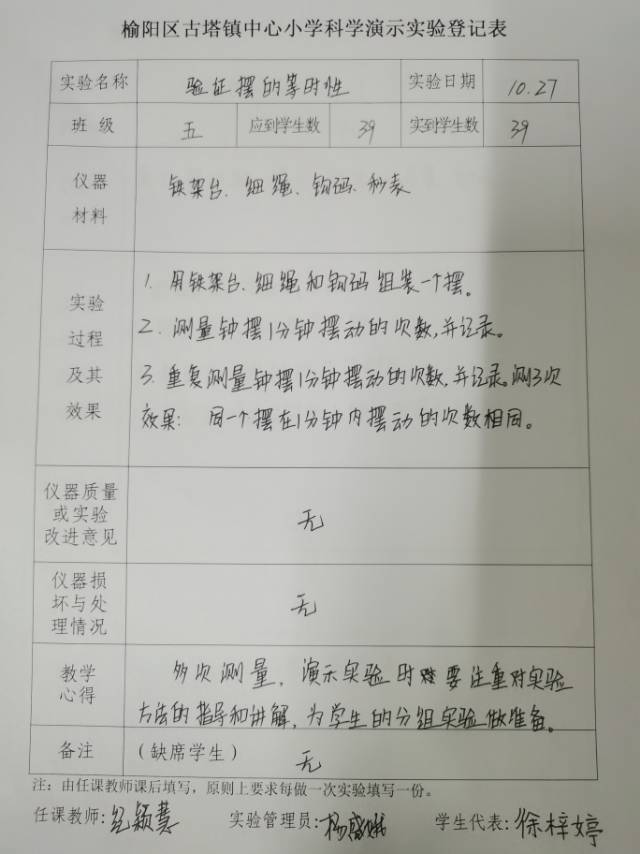 榆阳区古塔镇中心小学科学演示实验登记表
实验名称 验证摆的等时性 实验日期 10.27
班 级 五 应到学生数 39 实到学生数 39
仪器
材料
铁架台、细绳、钩码、秒表
实验
过程
及其
效果
1. 用铁架台、细绳和钩码组装一个摆。
2. 测量钟摆1分钟摆动的次数,并记录。
3. 重复测量钟摆1分钟摆动的次数,并记录。测3次
效果: 同一个摆在1分钟内摆动的次数相同。
仪器质量
或实验
改进意见
无
仪器损
坏与处
理情况
无
教学
心得
多次测量,演示实验时要注重对实验
方法的指导和讲解,为学生的分组实验做准备。
备注 (缺席学生) 无
注:由任课教师课后填写,原则上要求每做一次实验填写一份。
任课教师:纪颖慧 实验管理员:杨 学生代表:徐梓婷